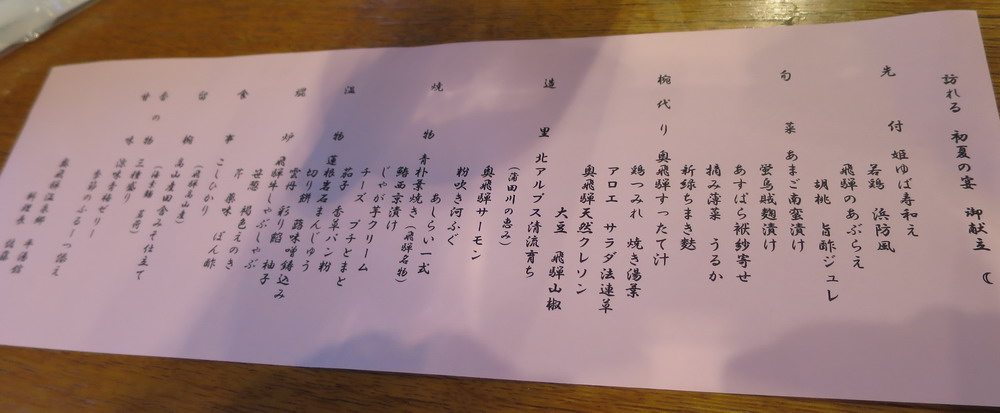 訪れる 初夏の宴 御献立
先付 姫ゆば寿和え
若鶏 浜防風
飛騨のあぶらえ
胡桃 旨酢ジュレ
旬菜 あまご南蛮漬け
蛍烏賊麹漬け
あすぱら袱紗寄せ
摘み薄菜 うるか
新緑ちまき麩
椀代り 奥飛騨すったて汁
鶏つみれ 焼き湯葉
アロエ サラダ法連草
奥飛騨天然クレソン
大豆 飛騨山椒
造里 北アルプス清流育ち
(蒲田川の恵み)
奥飛騨サーモン
粉吹き河ふぐ
あしらい一式
焼物 青朴葉焼き(飛騨名物)
鰆西京漬け
じゃが芋クリーム
チーズ プチとまと
茄子 香草パン粉
温物 蓮根養老まんじゅう
切り餅 蕗味噌鋳込み
雲丹 彩り餡 柚子
焜炉 飛騨牛しゃぶしゃぶ
笹葱 褐色えのき
芹 薬味 ぽん酢
食事 こしひかり
(飛騨高山産)
留椀 高山産田舎みそ仕立て
香の物 三種盛り
甘味 涼味青梅ゼリー
季節のふるーつ添え
奥飛騨温泉郷
料理長 佐藤